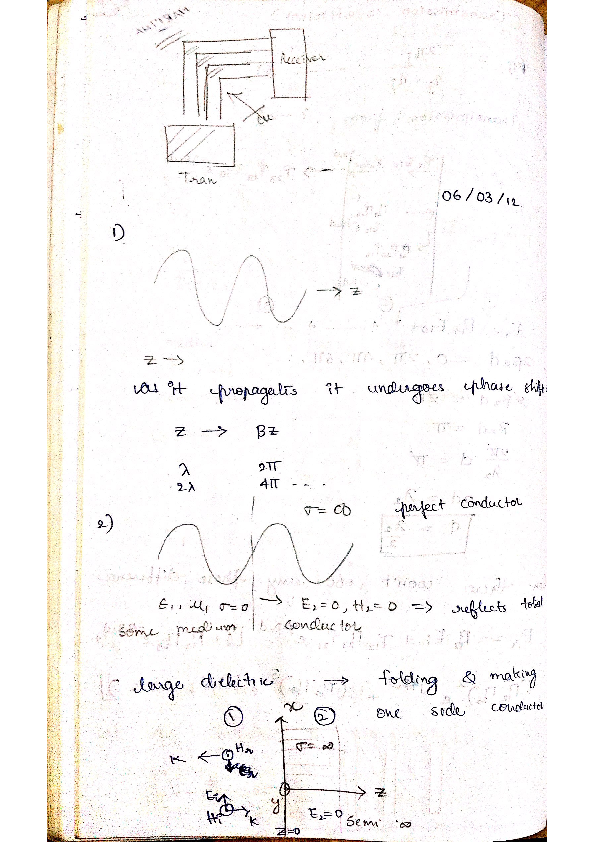 Receiver
Cu
Tran
06/03/12
1)
→ Z
Z →
as it propagates it undergoes phase shift
Z → βZ
λ 2π
2λ 4π ----
σ = ∞ perfect conductor
2)
ε₁, μ₁ σ=0 → E₂=0, H₂=0 => reflects total
some medium conductor
large dielectric → folding & making
① x ② one side conductor
K ← Hr σ = ∞
Er
→ Z
Ei y
Hi K E₂=0 semi ∞
Z=0